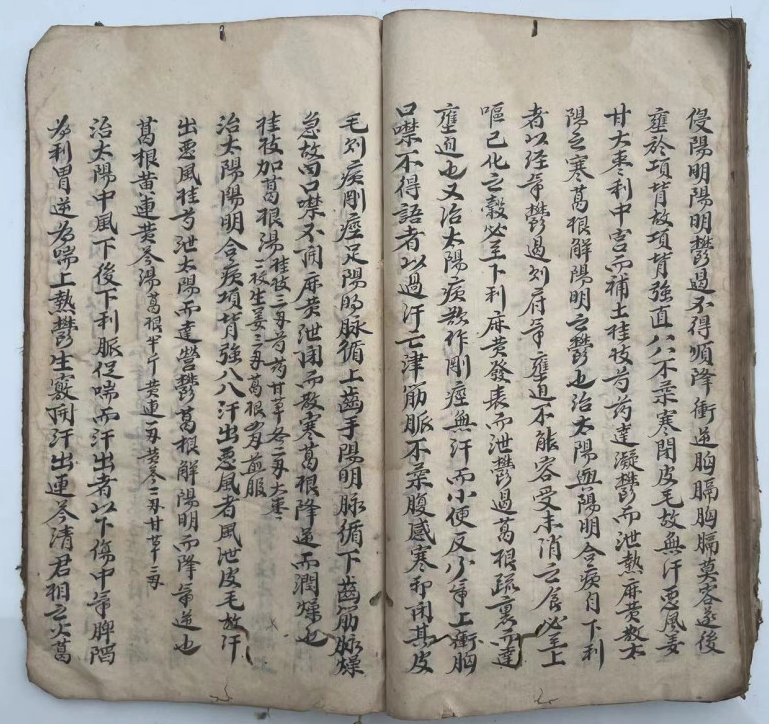 侵陽明陽明鬱遏不得順降衝逆胸膈胸膈莫容遂後
壅於項背故項背強直八八不柔寒閉皮毛故無汗惡風姜
甘大棗利中宮而補土桂枝芍药達凝鬱而泄熱麻黄散太
陽之寒葛根解陽明之鬱也治太陽與陽明合病自下利
者以经氣鬱遏则府氣壅迫不能容受未消之食必至上
嘔已化之穀必至下利麻黄發表而泄鬱遏葛根疏裏而達
壅迫也又治太陽病欲作剛痙無汗而小便反少氣上衝胸
口噤不得語者以過汗亡津筋脈不柔腹感寒邪閉其皮
毛则病剛痙足陽明脉循上齒手陽明脉循下齒筋脉燥
急故曰口噤不開麻黄泄閉而散寒葛根降逆而潤燥也
桂枝加葛根湯桂枝三兩芍药甘草各二兩大棗十二枚生姜三兩葛根四兩煎服
治太陽陽明合病項背強八八汗出惡風者風泄皮毛故汗
出惡風桂芍泄太陽而達營鬱葛根解陽明而降氣逆也
葛根黄連黄芩湯葛根半斤黄連一兩黄芩二兩甘草二兩
治太陽中風下後下利脈促喘而汗出者以下傷中氣脾陷
为利胃逆为喘上熱鬱生竅開汗出連芩清君相之火葛